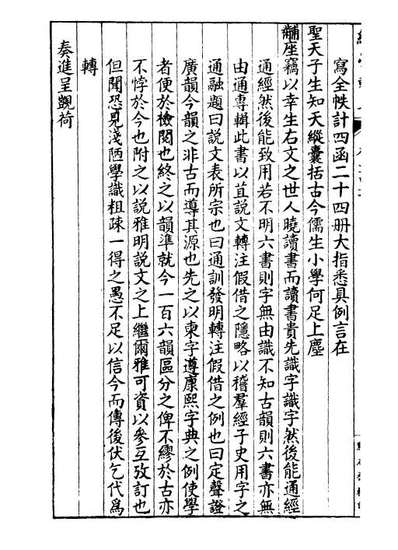 寫全帙計四函二十四册大指悉具例言在
聖天子生知天縱囊括古今儒生小學何足上塵
黼座竊以幸生右文之世人曉讀書而讀書貴先識字識字然後能通經
通經然後能致用若不明六書則字無由識不知古韻則六書亦無
由通專輯此書以苴說文轉注假借之隱略以稽羣經子史用字之
通融題曰說文表所宗也曰通訓發明轉注假借之例也曰定聲證
廣韻今韻之非古而導其源也先之以柬字遵康熙字典之例使學
者便於檢閱也終之以韻準就今一百六韻區分之俾不繆於古亦
不悖於今也附之以說雅明說文之上繼爾雅可資以參互攷訂也
但聞恐見淺陋學識粗疎一得之愚不足以信今而傳後伏乞代爲
轉
奏進呈覬荷